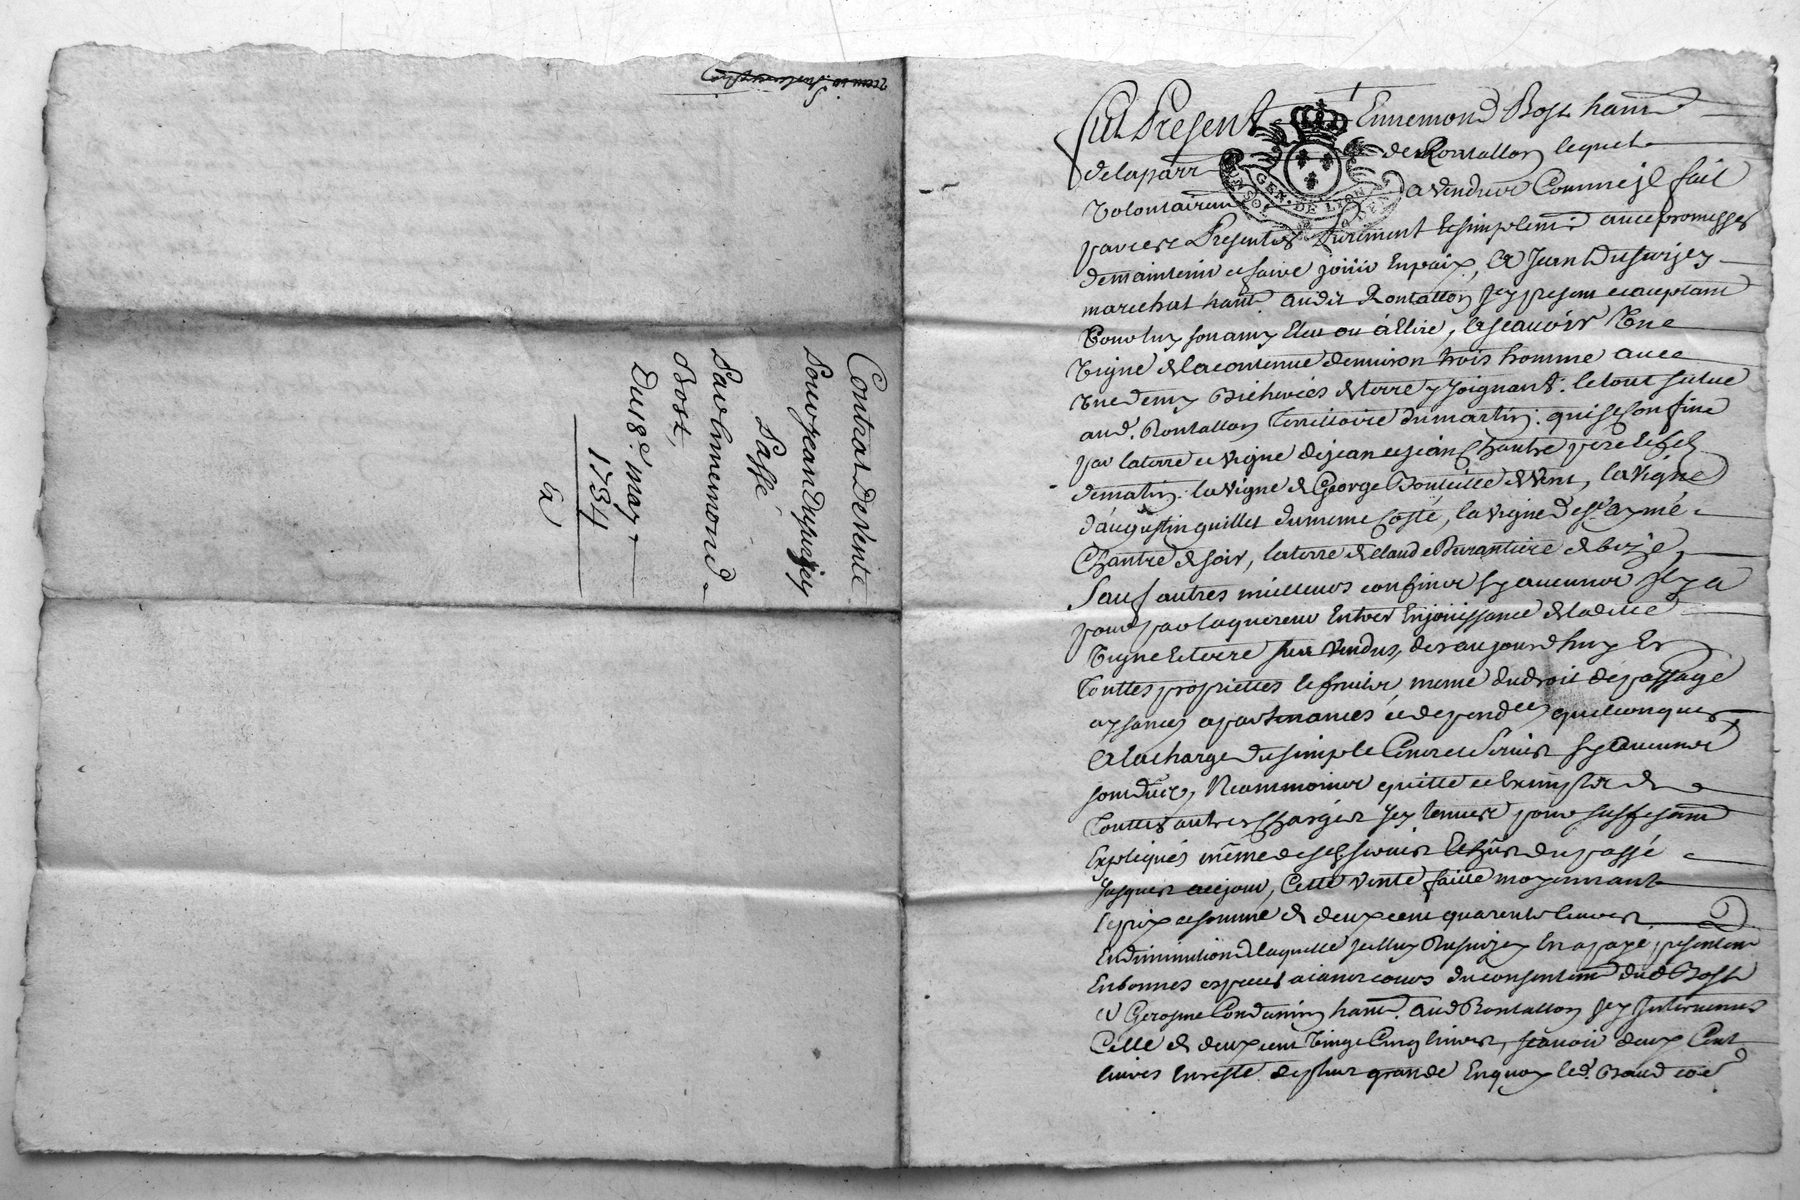 Contrat De Vente
Pour jean Dupuzey
Passé
Par Ennemond
Bost,
Du 18e may
1734
Ex
Fut Present Ennemond Bost habnt
de la parr de Rontallon lequel
volontairemt a vendu Comme jl fait
par ces Presentes Purement et simplemt avec promesses
de maintenir et faire jouir En paix, A Jean Dupuzey
marechal habnt audit Rontallon jcy present et acceptant
Pour luy son amy Elu ou à Elire, a scavoir Une
Vigne de la contenue d'environ trois homme avec
Une demy Bicherées de terre y Joignant: le tout situé
aud. Rontallon Territoire du martin: qui se Confine
par la terre et vigne de jean et jean Chantre pere et fils
de matin. la vigne de George Bouteille de Vent, la Vigne
d'augustin guillet du meme Costé, la vigne de sr aymé
Chantre de soir, la terre de Claude Burantiere de bize,
Sauf autres meilleurs confines sy aucunes jl y a
pour par laquereur Entrer En jouissance de la dite
Vigne et terre sus vendus, des aujourdhuy En
Touttes proprietés et fruits, meme du droit de passage
aysances apartenances et dependces quelconques,
A la charge du simple Cens et Servis sy aucunes
sont dues, Neanmoins quitte et Exempte de
Touttes autres Charges jcy tenues pour suffisamt
Expliqués même desd. servis du passé
jusques a ce jour, Cette vente faite moyennant
le prix et somme de deux cent quarente livres
En diminution de laquelle jcelluy Dupuzey En a payé presentemt
En bonnes especes ajant cours du consentemt dud. Bost
A Gerosme Condamin habnt. aud Rontallon jcy Intervenus
Celle de deux cent Vingt Cinq livres, scavoir deux Cent
livres En reste de plus grande En quoy led. Bost
GEN. DE LYON